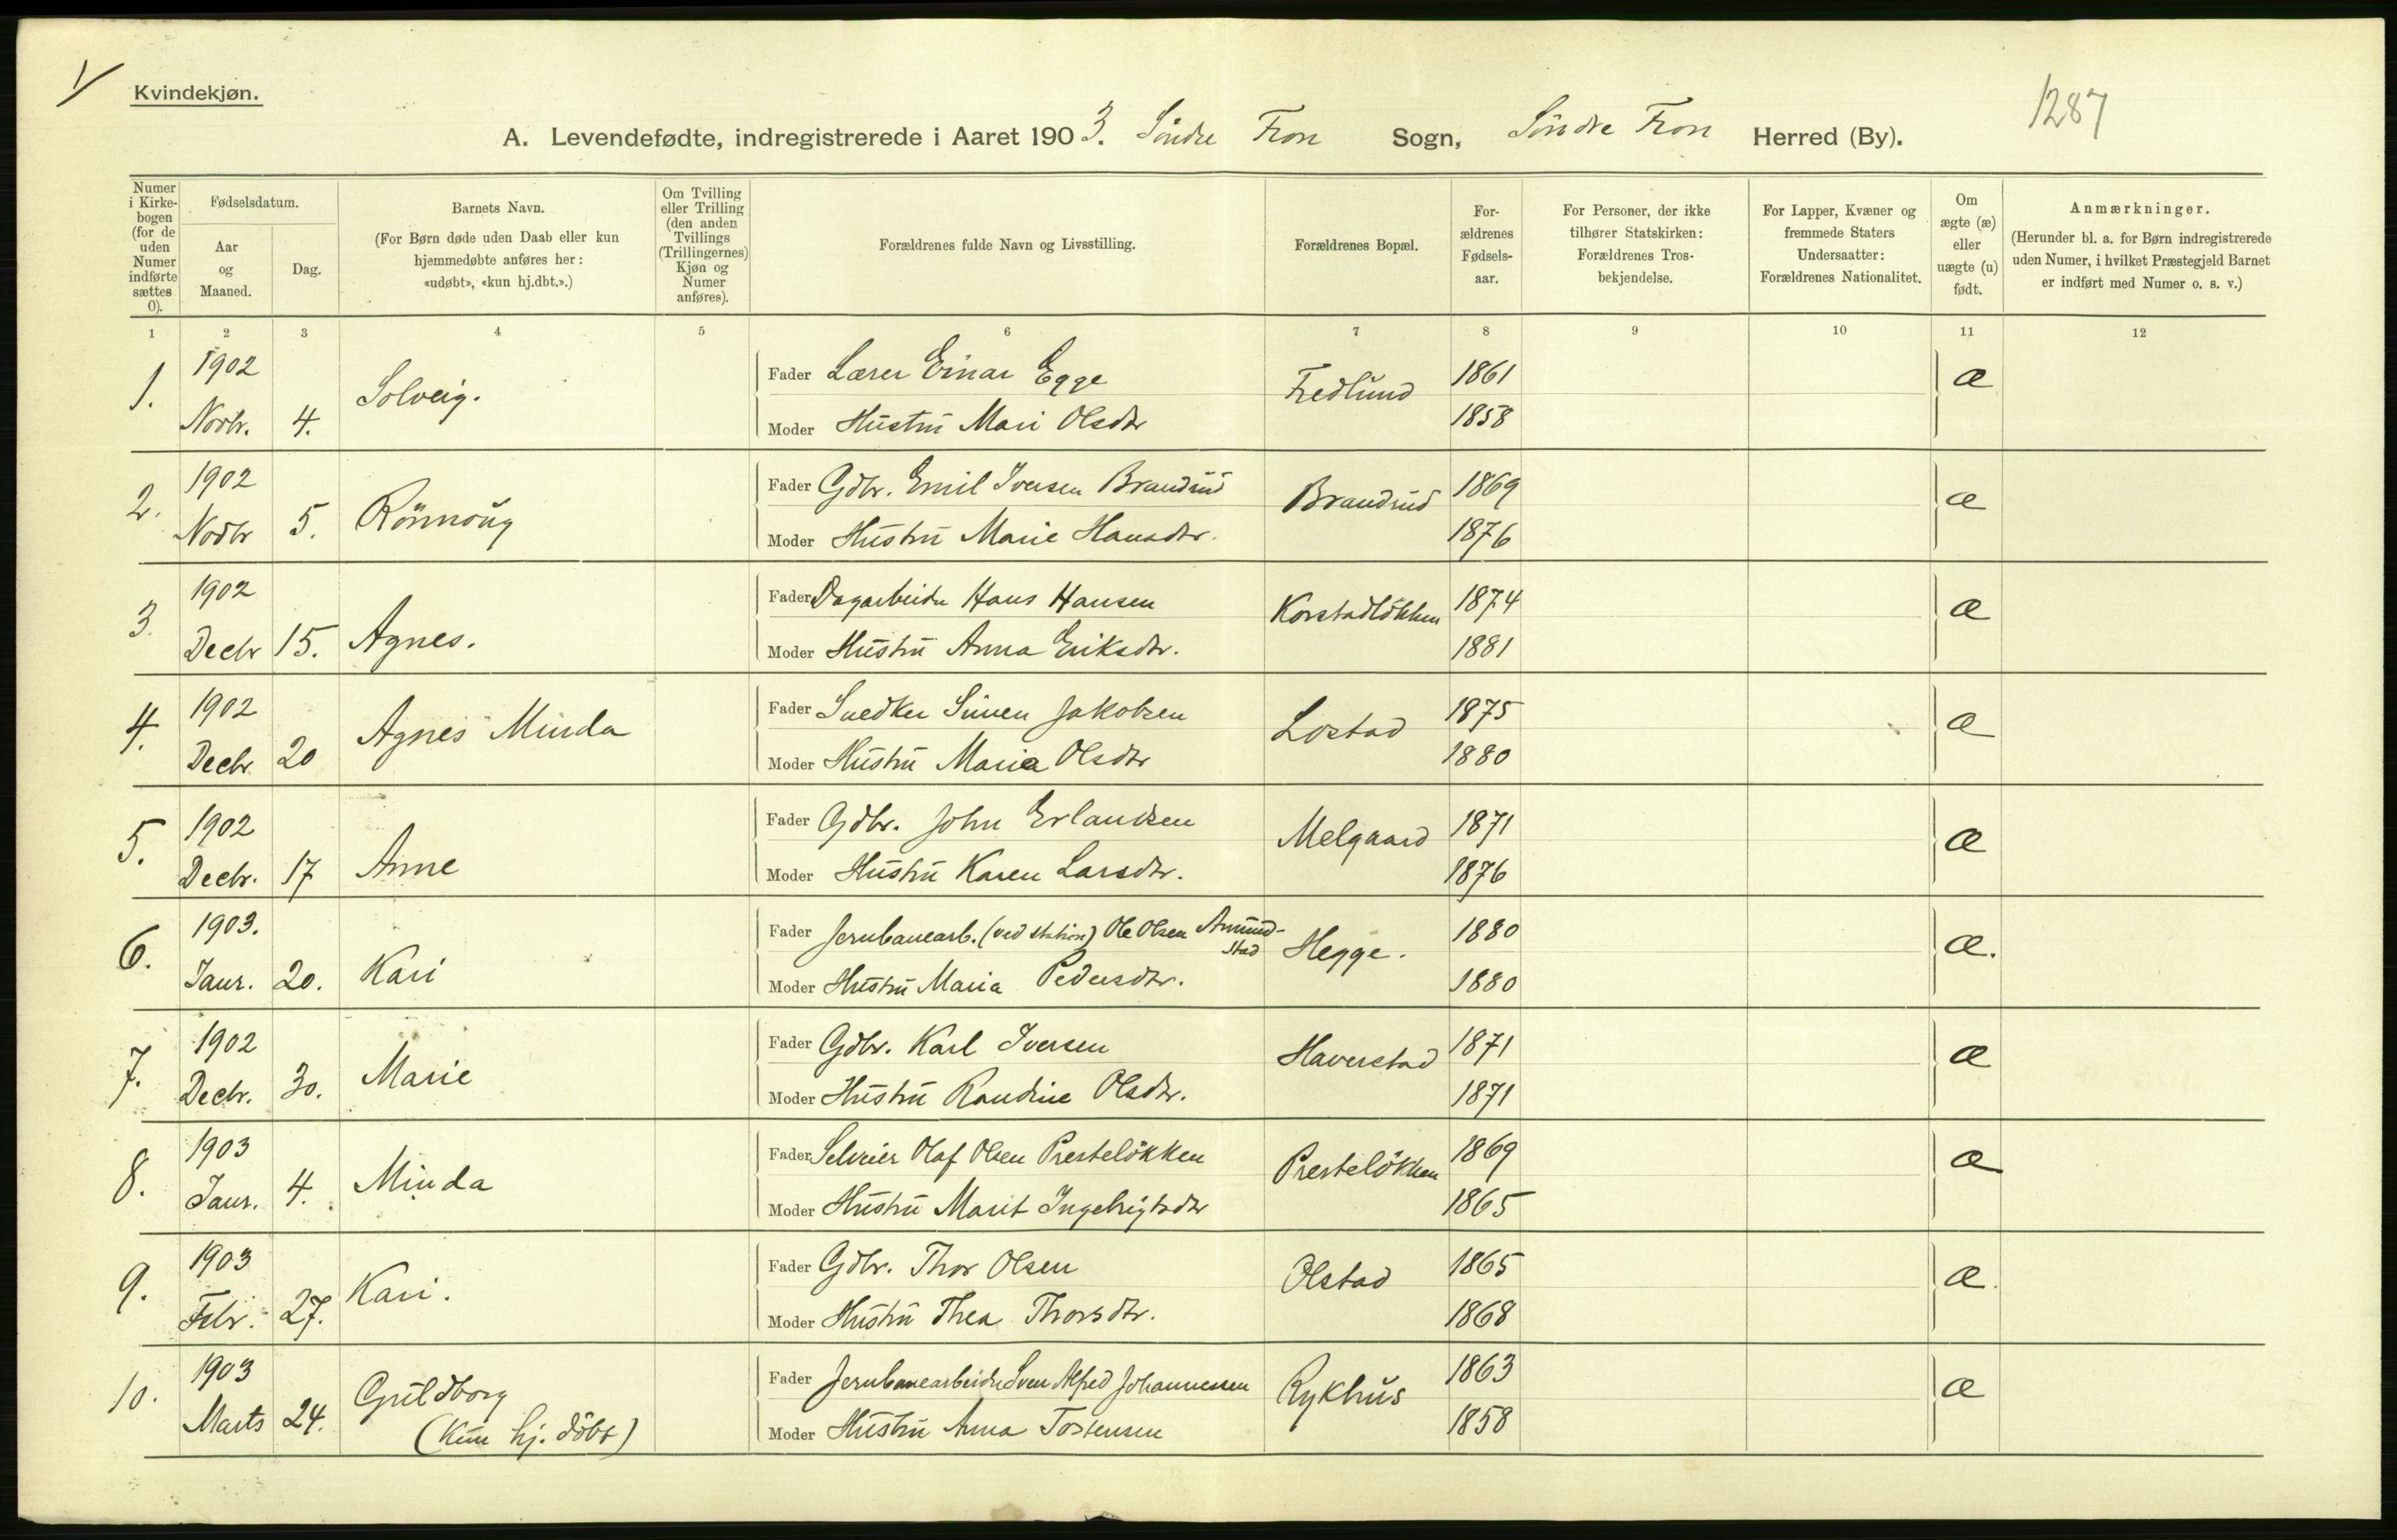 Kvindekjøn.
1287
A. Levendefødte, indregistrerede i Aaret 1903. Söndre Fron Sogn, Söndre Fron Herred (By).
Numer i Kirke-bogen (for de uden Numer indførte sættes 0).
Fødselsdatum.
Aar og Maaned.
Dag.
Barnets Navn.
(For Børn døde uden Daab eller kun hjemmedøbte anføres her: «udøbt», «kun hj.dbt.».)
Om Tvilling eller Trilling (den anden Tvillings (Trillingernes) Kjøn og Numer anføres).
Forældrenes fulde Navn og Livsstilling.
Forældrenes Bopæl.
For-ældrenes Fødsels-aar.
For Personer, der ikke tilhører Statskirken: Forældrenes Tros-bekjendelse.
For Lapper, Kvæner og fremmede Staters Undersaatter: Forældrenes Nationalitet.
Om ægte (æ) eller uægte (u) født.
Anmærkninger.
(Herunder bl. a. for Børn indregistrerede uden Numer, i hvilket Præstegjeld Barnet er indført med Numer o. s. v.)
1 2 3 4 5 6 7 8 9 10 11 12
1. 1902 Novbr. 4. Solveig. Fader Lærer Einar Egge Fredlund 1861 æ
Moder Hustru Mari Olsdtr 1858
2. 1902 Novbr 5. Rönnoug Fader Gdbr. Emil Iversen Brandrud Brandrud 1869 æ
Moder Hustru Marie Hansdtr. 1876
3. 1902 Decbr 15. Agnes. Fader Dagarbeider Hans Hansen Korstadlökken 1874 æ
Moder Hustru Anna Eriksdtr. 1881
4. 1902 Decbr 20 Agnes Minda Fader Snedker Simen Jakobsen Lostad 1875 æ
Moder Hustru Maria Olsdtr 1880
5. 1902 Decbr. 17 Anne Fader Gdbr. John Erlandsen Melgaard 1871 æ
Moder Hustru Karen Larsdtr. 1876
6. 1903. Janr. 20. Kari Fader Jernbanearb. (ved station) Ole Olsen Amund-stad Hegge. 1880 æ.
Moder Hustru Maria Pedersdtr. 1880
7. 1902 Decbr. 30. Marie Fader Gdbr. Karl Iversen Haverstad 1871 æ
Moder Hustru Randine Olsdtr. 1871
8. 1903 Janr. 4. Minda Fader Selveier Olaf Olsen Prestelökken Prestelökken 1869 æ
Moder Hustru Marit Ingebrigtsdtr 1865
9. 1903 Febr. 27. Kari. Fader Gdbr. Thor Olsen Olstad 1865 æ.
Moder Hustru Thea Thorsdtr. 1868
10. 1903 Marts 24. Guldborg Fader Jernbanearbeider Sven Alfred Johannessen Rykhus 1863 æ
(Kun hj. döbt) Moder Hustru Anna Tostensen 1858